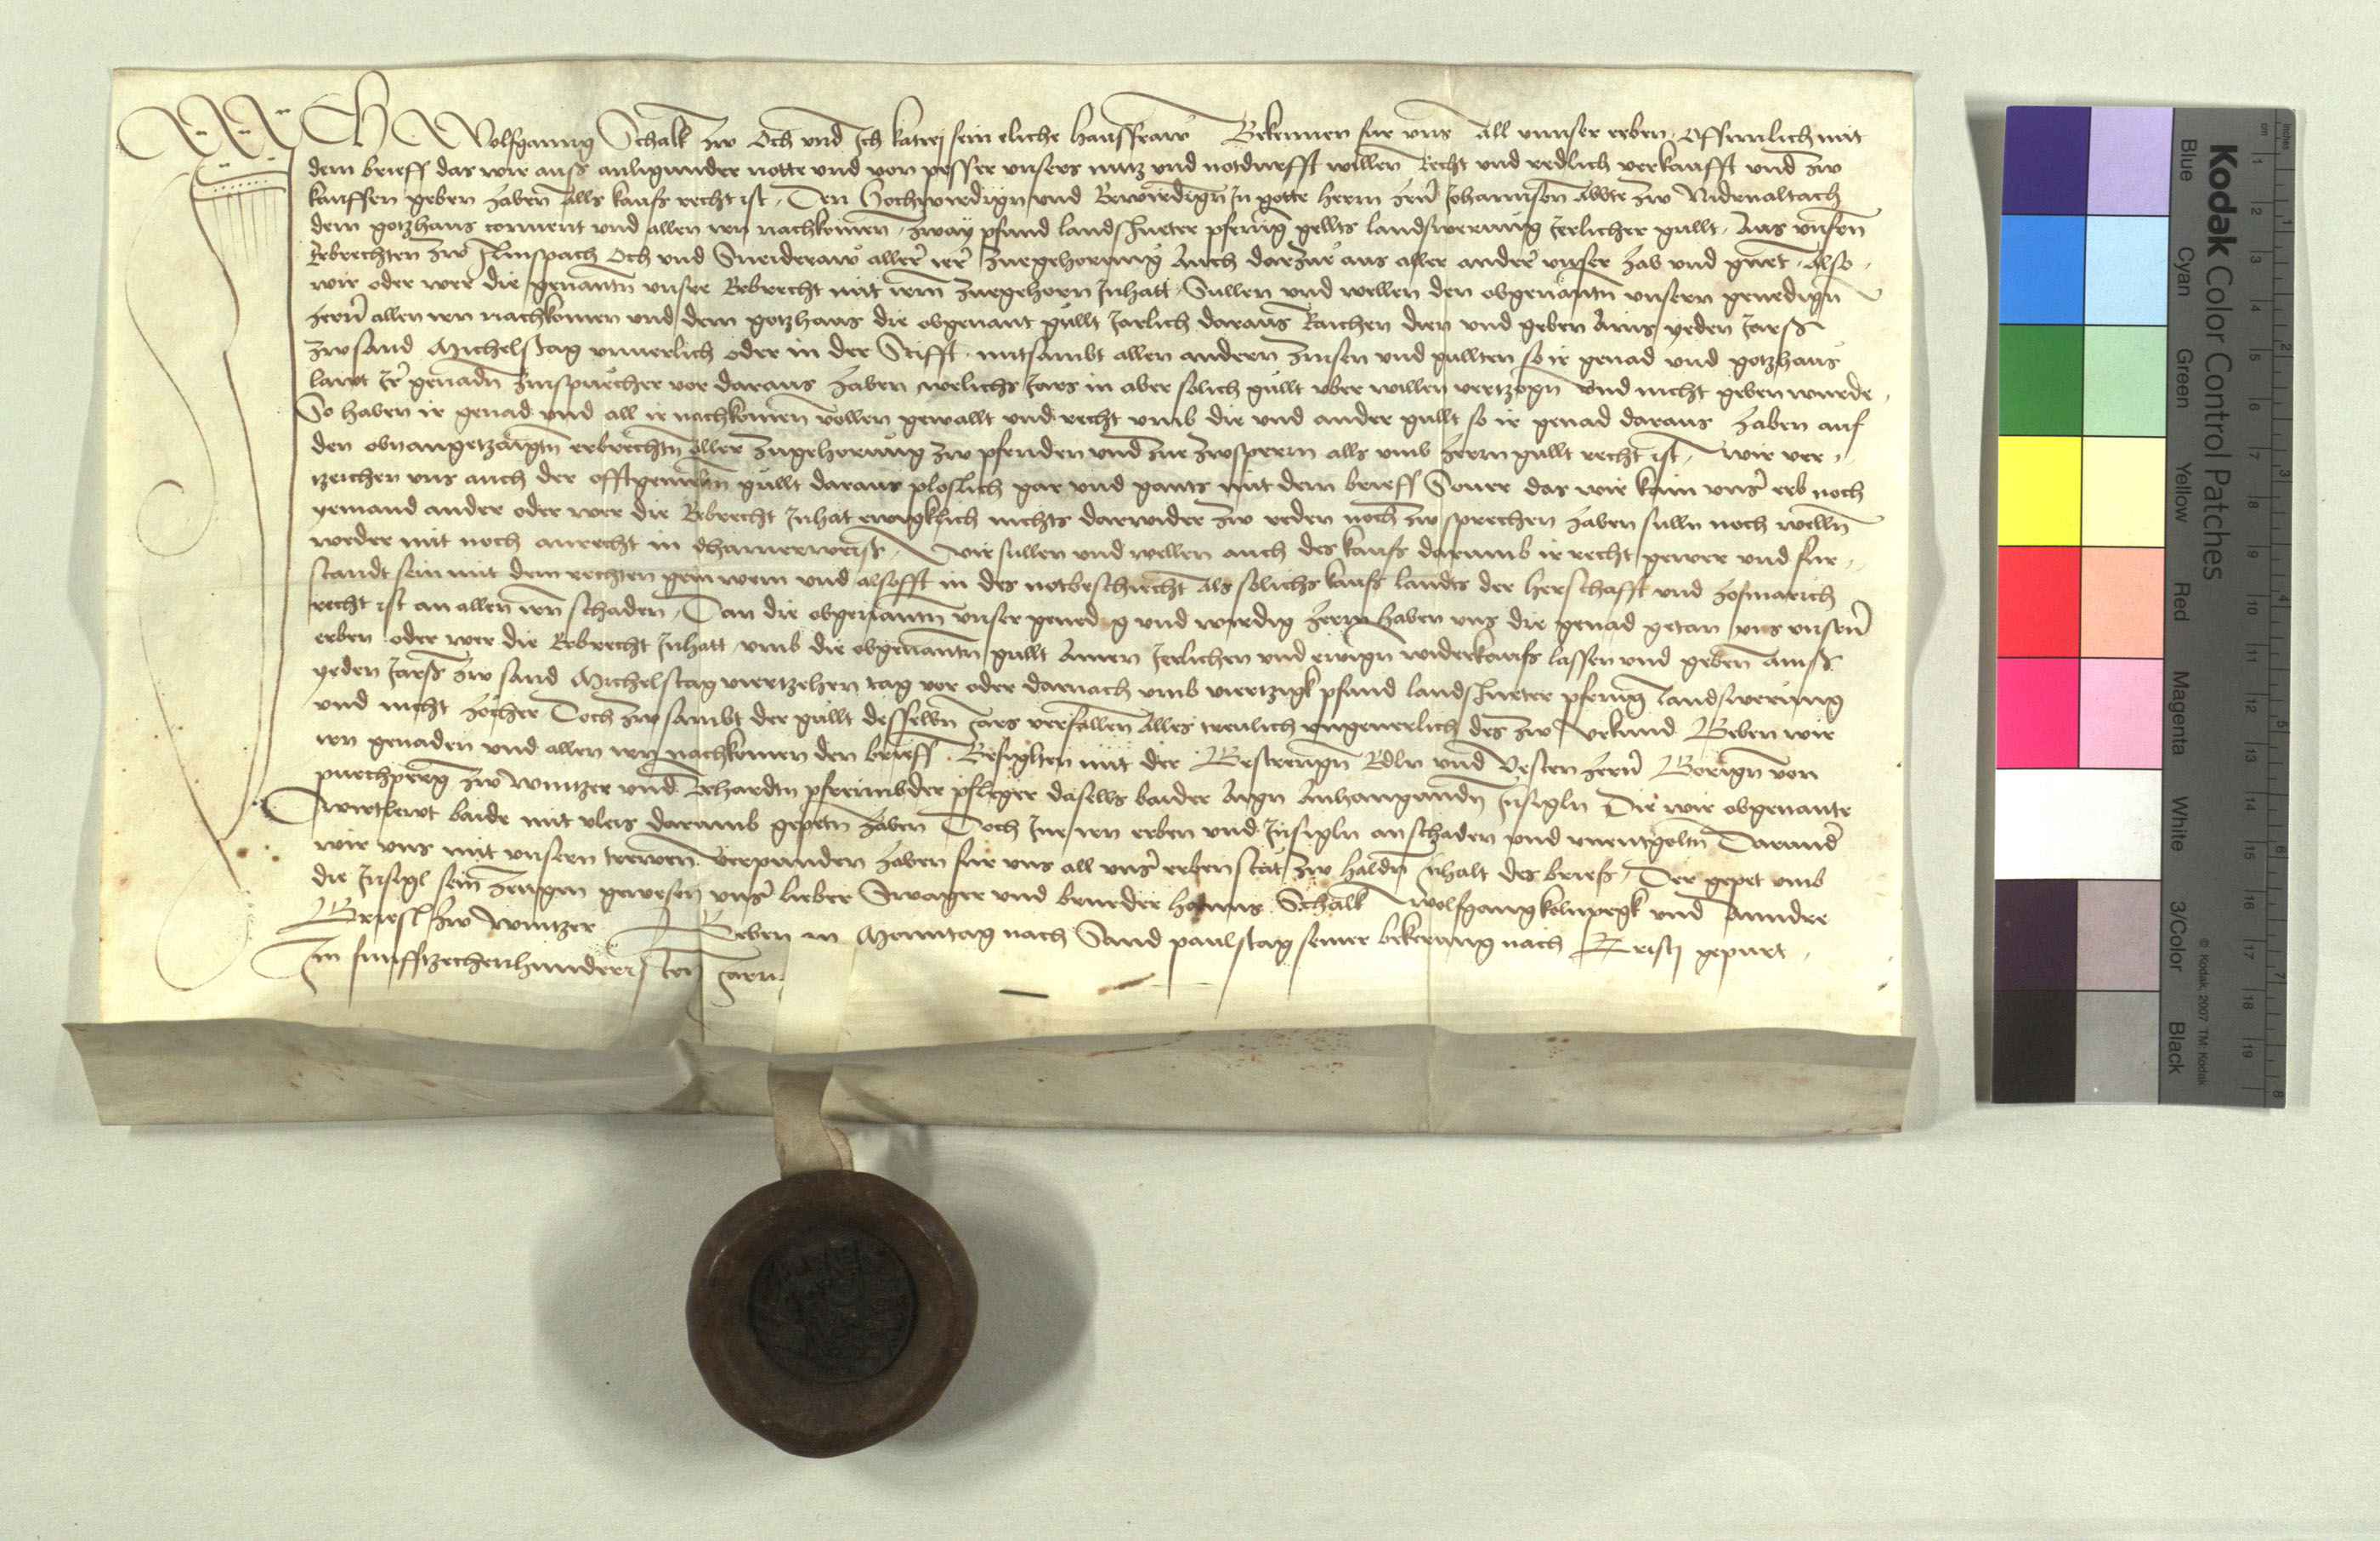 ICh Wolfganng Schalk zw Och und Ich katrej sein eliche hausfraw Bekennen fur uns all unnser erben Offennlich mit
dem brieff das wir auß anligunder notte und von pesser unsers nutz und notdurfft willen Recht und redlich verkaufft und zw
kauffen geben haben alls kaufs recht ist Den Hochwirdign und Erwirdign In gotte herrn hern Johannsen Abbte zw Nidernaltach
dem gotzhaus convent und allen irn nachkomen zway pfund landshueter pfennig gellts landswerung Jerlicher gullt Aus unsern
Erbrechten zw Flinspach Och und Sneideraw aller irer zuegehorung Auch darzue aus aller ander unser hab und guet Also
wir oder wer die genantn unser Erbrecht mit irem zuegehorn Inhatt Sullen und wellen den obgenantn unsern genedign
hern allen irn nachkomen und dem gotzhaus die obgenant gullt Jarlich daraus Raichen dien und geben Ains yeden Jarß
zw sand Michelstag unnerlich oder in der Stifft mitsambt allen andern zinsen und gullten so ir genad und gotzhaus
laut Ir genadn zinspuecher vor daraus haben welichs Jars in aber solich gullt uber willen vertzogn und nicht geben wurde
So haben ir genad und all ir nachkomen vollen gewallt und recht umb die und ander gullt so ir genad daraus haben auf
den obnangetzaigtn erbrechtn aller zugehorung zw pfenden und zue zwsperrn alls umb herrn gullt recht ist Wir ver
tzeichen uns auch der offtgemeltn gullt daraus ploslich gar und gants mit dem brieff Souer das wir kain unser erb noch
yemand ander oder wer die Erbrecht Inhat ewigklich nichts darwider zw reden noch zw sprechen haben sulln noch welln
weder mit noch anrecht in dhainerweiß Wir sullen und wellen auch des kaufs darumb ir recht gewer und fur
standt sein mit dem rechten gein wem und alsofft in des notbeschiecht als solichs kaufs landts der herschafft und hofmarich
recht ist an allen irn schaden Dan die obgenantn unser genedig und wirdig herrn haben uns die genad getan uns unsern
erben oder wer die Erbrecht Inhatt umb die obgenantn gullt Ainen Jerlichen und ewign widerkaufs lassen und geben ainß
yeden Jarß zw sand Michelstag viertzehen tag vor oder darnach umb viertzigk pfund landshueter pfennig landswerung
und nicht hocher Doch zw sambt der gullt desselbn Jars verfallen Alles treulich ungeuerlich des zw urkund Geben wir
irn genaden und allen irn nachkomen den brieff Besiglten mit der Gestrengn Edln und Vesten hern Georign von
puechperg zw Winntzer und Erhardtn pfreimbder pfleger daselbs baider Aign Anhangundn Insigln Die wir obgenante
wirtlewt baide mit vleis darumb gepetn haben Doch Jne irn erben und Insigln an schaden und unentgoltn Darunder
wir uns mit unsern trewen verpunden haben fur uns all unser erben stat zw haldn Inhalt des briefs Der gepet umb
die Insigl sein zewgen gewesen unser lieber Swager und brueder Hanns Schalk Wolfgang kolnpegk und Anndre
Griesl zw Winntzer Geben an Monntag nach Sand paulstag seiner bekerung nach Kristj gepurt
Im funfftzechenhundertsten Jarn
Kodak Color Control Patches
Blue Cyan Green Yellow Red Magenta White 3/Color Black
© Kodak, 2007 TM: Kodak
cm 1 2 3 4 5 6 7 8 9 10 11 12 13 14 15 16 17 18 19
inches 1 2 3 4 5 6 7 8